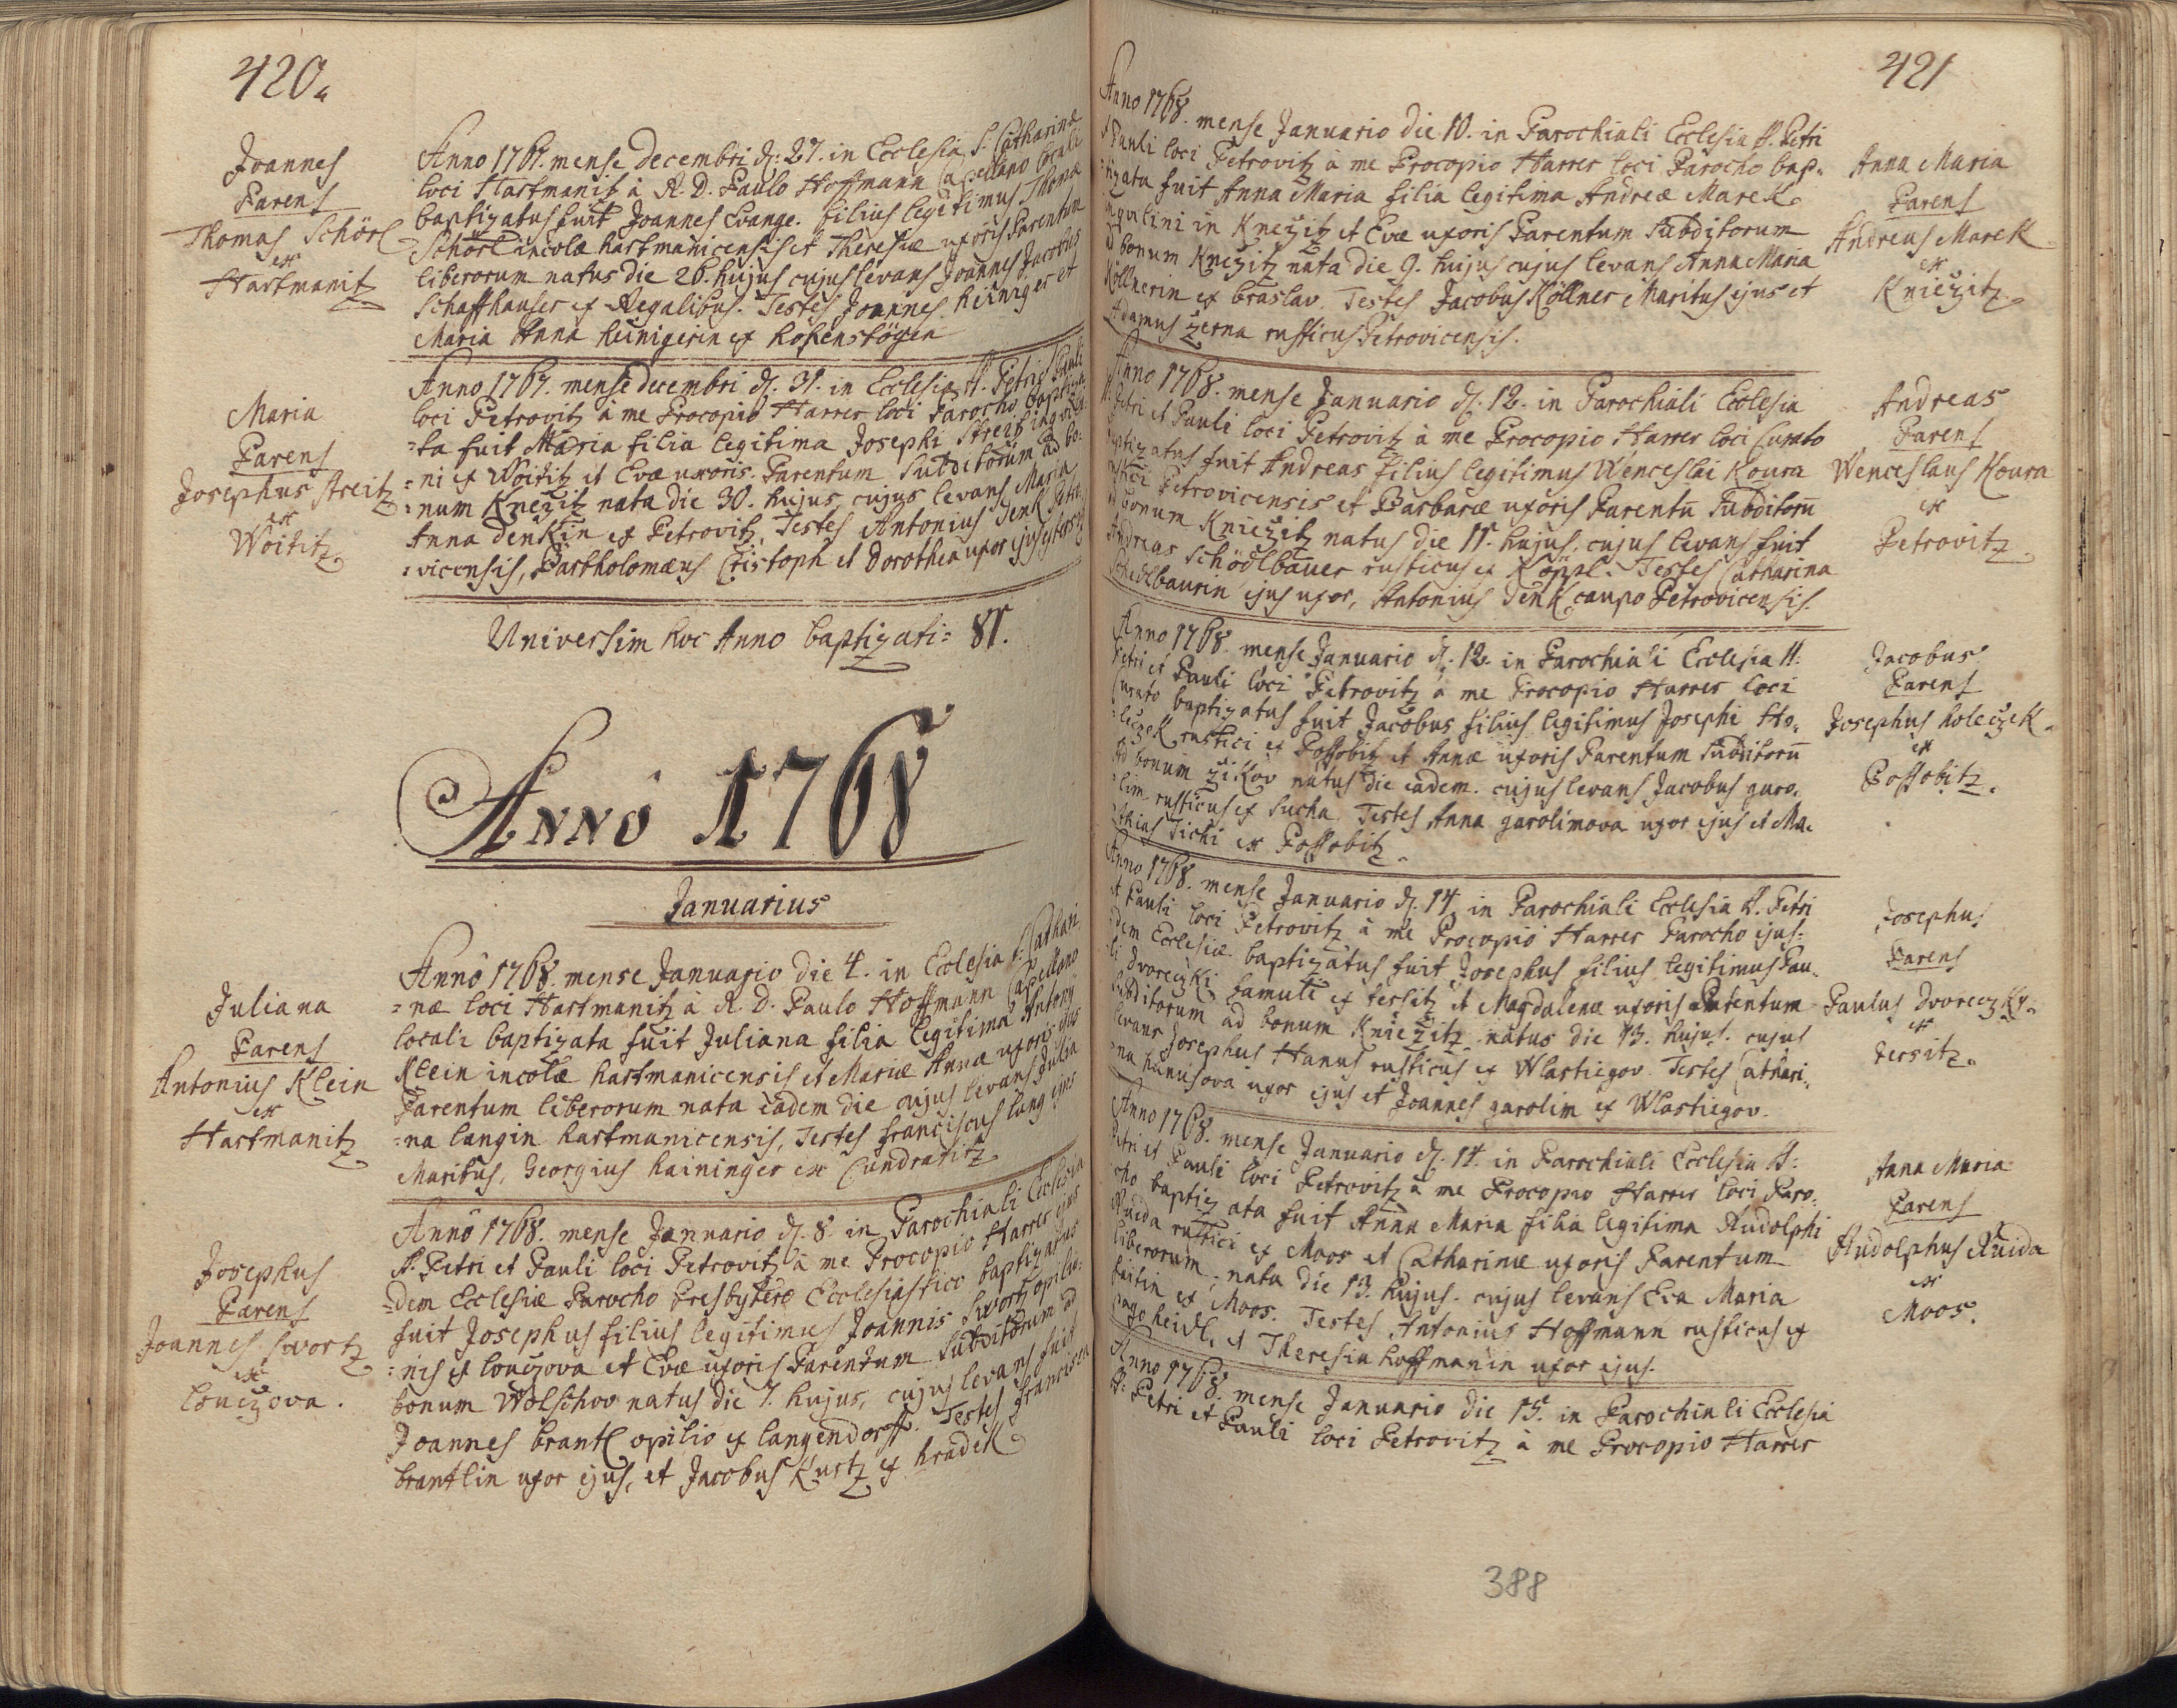 420.
Joannes
Parens
Thomas Schörl
ex
Hartmanitz
Anno 1767. mense decembri d. 27. in Ecclesia S. Catharinæ
loci Hartmanitz à R. D. Paulo Hoffmann Capellano locali
baptizatus fuit Joannes Evange. filius legitimus Thomæ
Schörl incolæ hartmanicensis et Theresiæ uxoris Parentum
liberorum natus die 26. hujus cujus levans Joannes Jacobus
Schaffhauser ex Regalibus. Testes Joannes Heiniger et
Maria Anna heinigerin ex
Maria
Parens
Josephus Streitz
ex
Woititz.
Anno 1767. mense decembri d. 31. in Ecclesia SS. Petri et Pauli
loci Petrovitz à me Procopio Harrer loci Parocho baptiza
=ta fuit Maria filia legitima Josephi Streitz inquili
=ni ex Woititz et Evæ uxoris Parentum Subditorum ad bo:
=num Knezitz nata die 30. hujus, cujus levans Maria
Anna denkin ex Petrovitz, Testes Antonius Denk Petro
=vicensis, Bartholomæus Cristoph et Dorothea uxor ejus
Universim hoc Anno baptizati = 81.
Anno 1768
Januarius
Juliana
Parens
Antonius Klein
ex
Hartmanitz
Anno 1768. mense Januario die 4. in Ecclesia S. Cathari
=næ loci Hartmanitz à R. D. Paulo Hoffmann Capellano
locali baptizata fuit Juliana filia legitima Antony
Klein incolæ hartmanicensis et Mariæ Annæ uxoris ejus
Parentum liberorum nata eadem die cujus levans Julia
=na langin hartmanicensis, Testes franciscus lang ejus
Maritus, Georgius haininger ex Cundratitz.
Josephus
Parens
Joannes Swortz
ex
louczova.
Anno 1768. mense Januario d. 8. in Parochiali Ecclesia
SS. Petri et Pauli loci Petrovitz à me Procopio Harrer ejus
=dem Ecclesiæ Parocho Presbytero Ecclesiastico baptizatus
fuit Josephus filius legitimus Joannis Swortz opilio
=nis ex louczova et Evæ uxoris Parentum Subditorum ad
bonum Wolschov natus die 7. hujus, cujus levans fuit
Joannes brantl opilio ex langendorff. Testes francisca
brantlin uxor ejus, et Jacobus Kurtz ex hradek
421
Anno 1768. mense Januario die 10. in Parochiali Ecclesia SS. Petri
Pauli loci Petrovitz à me Procopio Harrer loci Parocho bap=
=tizata fuit Anna Maria filia legitima Andreæ Marek
inquilini in Knezitz et Evæ uxoris Parentum Subditorum
ad bonum Knezitz nata die 9. hujus cujus levans Anna Maria
Köllnerin ex braslav. Testes Jacobus Köllner Maritus ejus et
Adamus zerna rusticus Petrovicensis.
Anna Maria
Parens
Andreas Marek
ex
Kniezitz.
Anno 1768. mense Januario d. 12. in Parochiali Ecclesia
SS. Petri et Pauli loci Petrovitz à me Procopio Harrer loci Curato
baptizatus fuit Andreas filius legitimus Wenceslai Koura
rustici Petrovicensis et Barbaræ uxoris Parentū Subditorū
ad bonum Kniezitz natus die 11. hujus, cujus levans fuit
Andreas Schödlbauer rusticus ex Köppl. Testes Catharina
Schedlbaurin ejus uxor, Antonius Denk caupo Petrovicensis.
Andreas
Parens
Wenceslaus Koura
ex
Petrovitz.
Anno 1768. mense Januario d. 12. in Parochiali Ecclesia SS.
Petri et Pauli loci Petrovitz à me Procopio Harrer loci
Curato baptizatus fuit Jacobus filius legitimus Josephi Ho=
=leczek rustici ex Possobitz et Annæ uxoris Parentum Subditorū
ad bonum zikov natus die eadem. cujus levans Jacobus garo=
=lim rusticus ex Sucha. Testes Anna garolimova uxor ejus et Ma=
=thias Tichi ex Possobitz.
Jacobus
Parens
Josephus holeczek.
ex
Possobitz.
Anno 1768. mense Januario d. 14. in Parochiali Ecclesia SS. Petri
et Pauli loci Petrovitz à me Procopio Harrer Parocho ejus=
=dem Ecclesiæ baptizatus fuit Josephus filius legitimus Pau=
=li dvoreczki famuli ex tersitz et Magdalenæ uxoris Parentum
Subditorum ad bonum Kniezitz natus die 13. hujus. cujus
levans Josephus Hanus rusticus ex Wlastiegov. Testes Cathari=
=na hanusova uxor ejus et Joannes garolim ex Wlastiegov.
Josephus
Parens
Paulus Dvoreczky.
ex
tersitz.
Anno 1768. mense Januario d. 14. in Parochiali Ecclesia SS.
Petri et Pauli loci Petrovitz à me Procopio Harrer loci Paro=
cho baptizata fuit Anna Maria filia legitima Rudolphi
Ruida rustici ex Moos et Catharinæ uxoris Parentum
liberorum, nata die 13. hujus. cujus levans Eva Maria
ex Moos. Testes Antonius Hoffmann rusticus ex
heidl, et Theresia hoffmanin uxor ejus.
Anna Maria
Parens
Rudolphus Ruida
ex
Moos.
Anno 1768. mense Januario die 15. in Parochiali Ecclesia
SS. Petri et Pauli loci Petrovitz à me Procopio Harrer
388